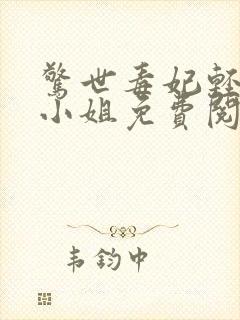 驚世毒妃輕
小姐免費閱
韦鈞中